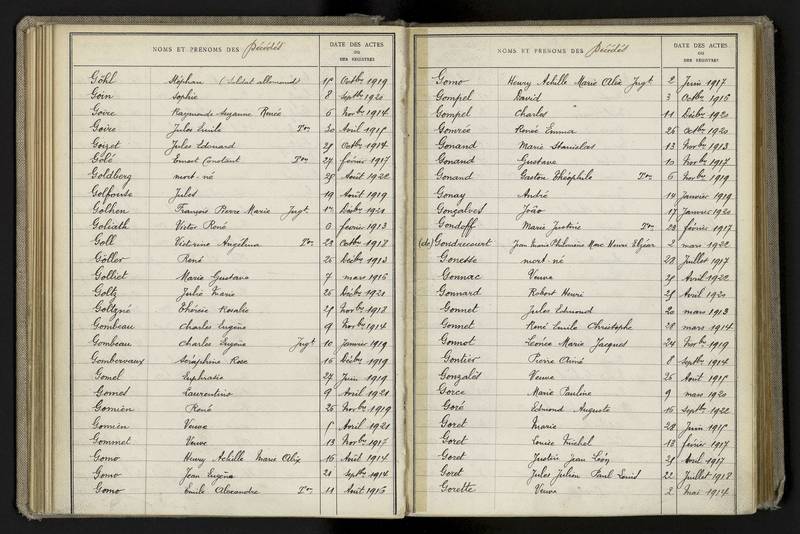 NOMS ET PRENOMS DES Décédés
DATE DES ACTES
OU
DES REGISTRES
Göhl Stéphan (Soldat allemand) 15 Octbre 1919
Goin Sophie 8 Septbre 1920
Goire Raymonde Suzanne Renée 6 Novbre 1914
Goire Jules Emile Ton 30 Avril 1915
Goizet Jules Edouard 25 Octbre 1914
Golé Ernest Constant Ton 27 février 1917
Goldberg mort-né 25 Août 1922
Golfouse Jules 19 Août 1919
Golhen François Pierre Marie Jugt 1er Décbre 1920
Goliath Victor René 6 février 1913
Goll Victorine Angélina Ton 22 Octbre 1918
Göller René 25 Décbre 1913
Golliet Marie Gustave 7 mars 1916
Goltz Julie Marie 25 Décbre 1921
Goltzné Thérèse Rosalie 25 Novbre 1913
Gombeau Charles Eugène 9 Novbre 1914
Gombeau Charles Eugène Jugt 10 Janvier 1919
Gombervaux Séraphine Rose 16 Décbre 1919
Gomel Euphrasie 27 Juin 1919
Gomes Laurentino 9 Avril 1921
Gomien René 25 Novbre 1919
Gomien Veuve 5 Avril 1921
Gommet Veuve 13 Novbre 1917
Gomo Henry Achille Marie Alix 16 Avril 1914
Gomo Jean Eugène 21 Septbre 1914
Gomo Emile Alexandre Ton 11 Août 1916
NOMS ET PRENOMS DES Décédés
DATE DES ACTES
OU
DES REGISTRES
Gomo Henry Achille Marie Alix Jugt 2 Juin 1917
Gompel David 3 Octbre 1916
Gompel Charles 11 Décbre 1920
Gomrée Renée Emma 26 Octbre 1920
Gonand Marie Stanislas 13 Novbre 1913
Gonand Gustave 10 Novbre 1917
Gonand Gaston Théophile Ton 6 Novbre 1919
Gonay André 14 Janvier 1919
Gonçalves João 17 Janvier 1920
Gondoff Marie Justine Ton 23 février 1917
(de) Gondrecourt Jean Marie Philomène Marc Henri Elzéar 2 mars 1922
Gonesse mort-né 29 Juillet 1917
Gonnac Veuve 25 Avril 1922
Gonnard Robert Henri 25 Avril 1920
Gonnet Jules Edmond 20 mars 1913
Gonnet René Emile Christophe 28 mars 1914
Gonnot Léonce Marie Jacques 24 Novbre 1919
Gontier Pierre Aimé 8 Septbre 1914
Gonzalès Veuve 26 Août 1915
Gorce Marie Pauline 9 mars 1920
Goré Edmond Auguste 16 Septbre 1922
Goret Marie 29 Juin 1915
Goret Louise Michel 13 février 1917
Goret Justin Jean Léon 25 Avril 1917
Goret Jules Julien Paul Louis 22 Juillet 1918
Gorette Veuve 2 Mai 1914